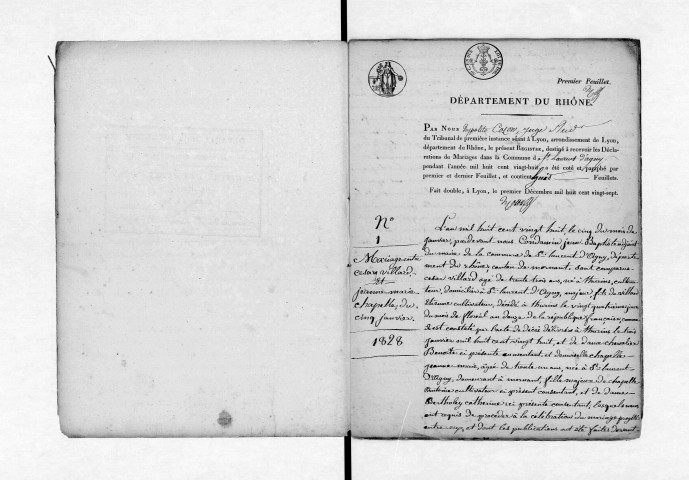 Premier Feuillet.
DÉPARTEMENT DU RHÔNE.
PAR NOUS hypolite juge
du Tribunal de première instance séant à Lyon, arrondissement de Lyon,
département du Rhône, le présent REGISTRE, destiné à recevoir les Décla-
rations de Mariages dans la Commune d St Laurent d'agny
pendant l'année mil huit cent vingt-huit, a été coté et paraphé par
premier et dernier Feuillet, et contient Feuillets.
Fait double, à Lyon, le premier Décembre mil huit cent vingt-sept.
No
1
Mariage entre
cesar villard
et
jeanne marie
chapelle, du
cinq janvier.
1828
L'an mil huit cent vingt huit, le cinq du mois de
janvier, pardevant nous Condamin jean Baptiste adjoint
du maire de la commune de St Laurent d'Agny, départe
ment du rhône, canton de mornant, sont comparus
cesar villard agé de trente trois ans, né à thurins, cultiva
teur, domicilié à St Laurent d'Agny, majeur, fils de villard
Etienne cultivateur, décédé à thurins le vingt quatrieme jour
du mois de floréal an douze de la république française, comme
il est constaté par l'acte de décès délivré à thurins le trois
janvier mil huit cent vingt huit, et de dame chavolan
Benoite ci présente consentant, et demoiselle chapelle
jeanne marie, âgée de trente un ans, née à St Laurent
d'Agny, demeurant à mornant, fille majeure de chapelle
Antoine cultivateur ci présent consentant, et de dame
Bertholey catherine ici présente consentant, lesquels nous
ont requis de procéder à la célébration du mariage projetté
entre eux, et dont les publications ont été faites devant